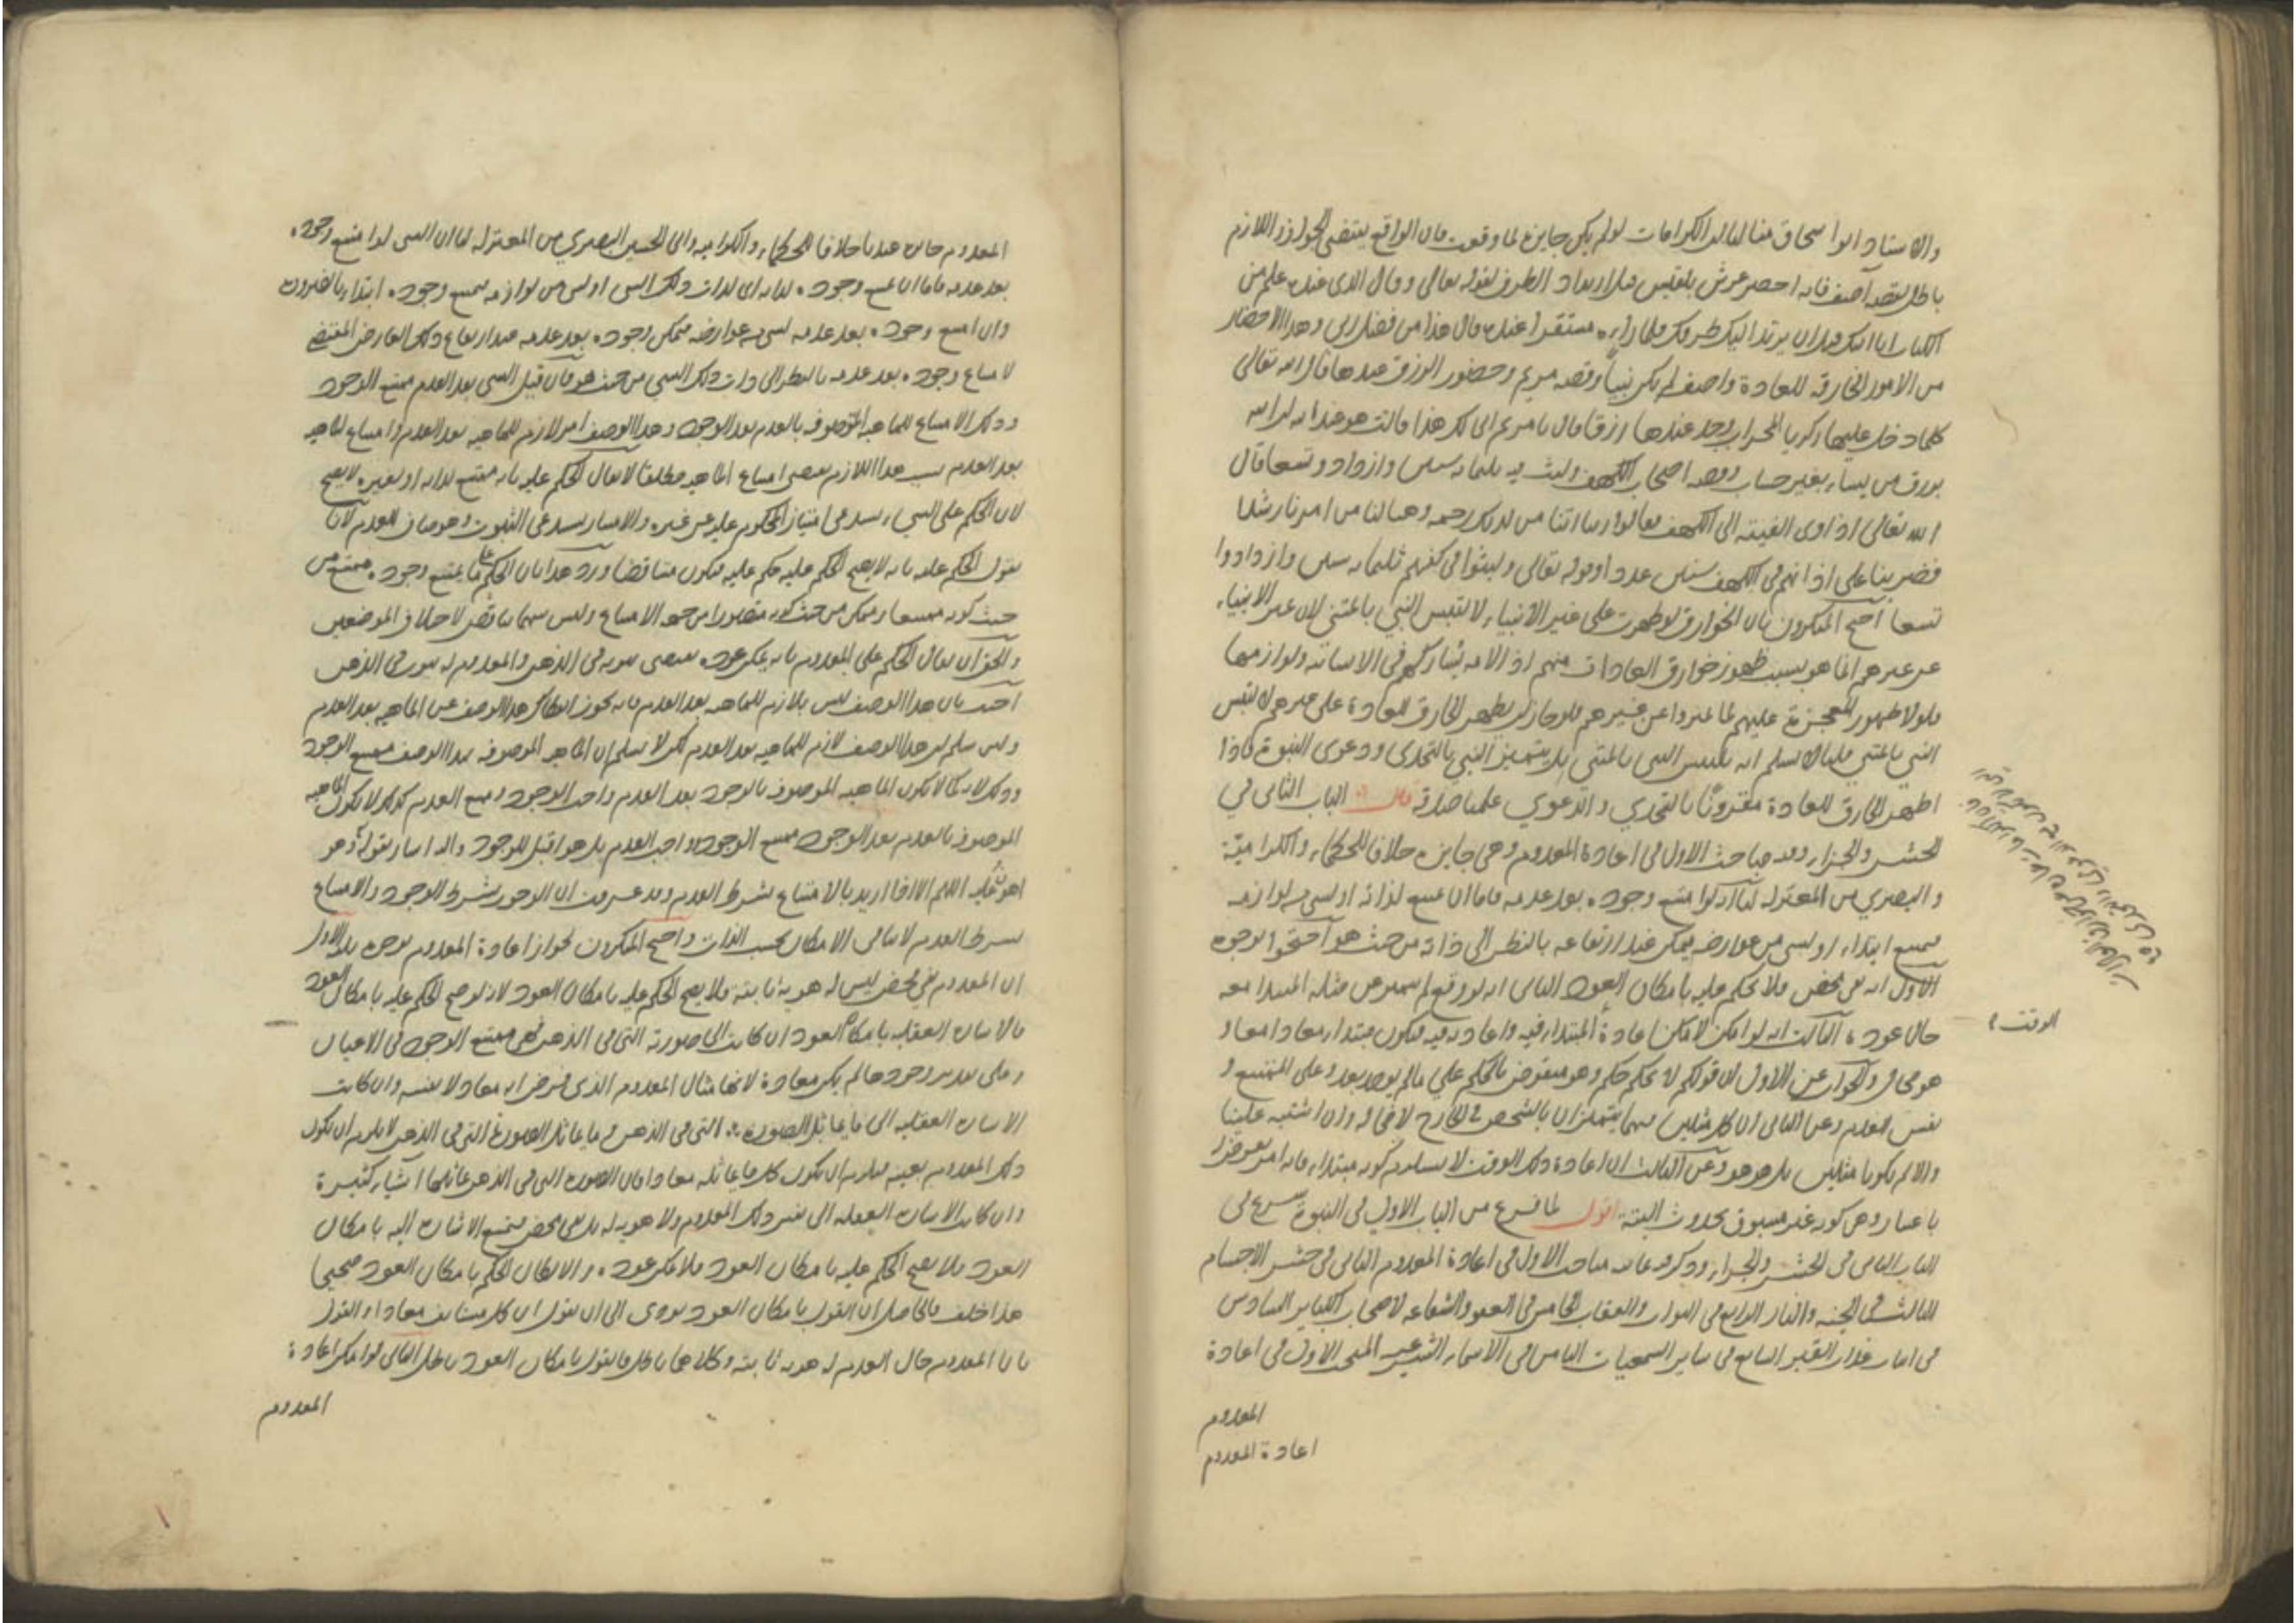 والاستاد ابو اسحاق منا لنا ان الكرامات لو لم يكن جايزة لما وقعت فان الواقع يقتضي الجواز واللازم
باطل لقصة آصف فانه احضر عرش بلقيس قبل ارتداد الطرف لقوله تعالى وقال الذى عنده علم من
الكتاب انا اتيك قبل ان يرتد اليك طرفك فلما راه مستقرا عنده قال هذا من فضل ربى وهذا الاحضار
من الامور الخارقة للعادة واصف لم يكن نبيا وقصة مريم وحضور الرزق عندها قال الله تعالى
كلما دخل عليها زكريا المحراب وجد عندها رزقا قال يا مريم انى لك هذا قالت هو من عند الله ان الله
يرزق من يشاء بغير حساب وقصة اصحاب الكهف ولبثه فيه ثلثمائة سنين وازدادوا تسعا قال
الله تعالى اذ اوى الفتية الى الكهف فقالوا ربنا اتنا من لدنك رحمة وهيئ لنا من امرنا رشدا
فضربنا على اذانهم في الكهف سنين عددا وقوله تعالى ولبثوا في كهفهم ثلثمائة سنين وازدادوا
تسعا احتج المنكرون بان الخوارق لو ظهرت على غير الانبياء لالتبس النبي بالمتنبي لان تميز الانبياء
عن غيرهم انما هو بسبب ظهور خوارق العادات منهم اذ الامة يشاركهم في الانسانية ولوازمها
فلولا ظهور المعجزة عليهم لما تميزوا عن غيرهم فلو جاز ان يظهر الخارق للعادة على غيرهم لالتبس
النبي بالمتنبي قلنا لا نسلم انه يلتبس النبي بالمتنبي بل يتميز النبي بالتحدى ودعوى النبوة فاذا
اظهر الخارق للعادة مقرونا بالتحدي والدعوي علمنا صدقه قال الباب الثاني في
الحشر والجزاء وفيه مباحث الاول في اعادة المعدوم وهي جايزة خلافا للحكماء والكرامية
والبصري من المعتزلة لنا انه لو امتنع وجوده بعد عدمه فاما ان يمتنع لذاته او لشيء من لوازمه
فيمتنع ابتداء او لشيء من عوارضه فيمكن عند ارتفاعه بالنظر الى ذاته من حيث هو احتجوا بوجوه
الاول انه نفي محض فلا يحكم عليه بامكان العود الثاني انه لو وقع لم يتميز عن مثله المبتدا معه
حال عوده الثالث انه لو امكن لامكن اعادة الوقت المبتدا فيه واعادته فيه فيكون مبتدا ومعادا معا و
هو محال والجواب عن الاول ان قولكم لا يحكم حكم وهو منقوض بالحكم علي مالم يوجد بعد وعلى الممتنع و
نفس العدم وعن الثاني ان كل مثلين فهما يتمايزان بالتشخص في الخارج لا محالة وان اشتبه علينا
والا لم يكونا مثلين بل هو هو وعن الثالث ان اعادة ذلك الوقت لا يستلزم كونه مبتدا فانه امر يعرض له
باعتبار وهي كونه غير مسبوق بحدوث البتة اقول لما فرغ من الباب الاول في النبوة شرع في
الباب الثاني في الحشر والجزاء وذكر فيه ثمانية مباحث الاول في اعادة المعدوم الثاني في حشر الاجسام
الثالث في الجنة والنار الرابع في الثواب والعقاب الخامس في العفو والشفاعة لاصحاب الكباير السادس
في اثبات عذاب القبر السابع في ساير السمعيات الثامن في الاسماء الشرعية المبحث الاول في اعادة
المعدوم
اعادة المعدوم
الوقت
المعدوم جايز عندنا خلافا للحكماء والكرامية وابى الحسين البصري من المعتزلة لنا ان الشي لو امتنع وجوده
بعد عدمه فاما ان يمتنع وجوده لذاته اى لذات ذلك الشي او لشي من لوازمه فيمتنع وجوده ابتداء بالضرورة
وان امتنع وجوده بعد عدمه لشي من عوارضه فيمكن وجوده بعد عدمه عند ارتفاع ذلك العارض المقتضي
لامتناع وجوده بعد عدمه بالنظر الى ذات ذلك الشي من حيث هو فان قيل الشي بعد العدم ممتنع الوجود
وذلك الامتناع للماهية الموصوفة بالعدم بعد الوجود وهذا الوصف امر لازم للماهية بعد العدم وامتناع الماهية
بعد العدم بسبب هذا اللازم يقتضى امتناع الماهية مطلقا لا يقال الحكم عليه بانه ممتنع لذاته او لغيره لا يصح
لان الحكم على الشي يستدعى امتياز المحكوم عليه عن غيره والامتياز يستدعى الثبوت وهو مناف للعدم لانا
نقول الحكم عليه بانه لا يصح الحكم عليه حكم عليه فيكون متناقضا ورد هذا بان الحكم على ما يمتنع وجوده ممتنع من
حيث كونه ممتنعا وممكن من حيث كونه متصورا من جهة الامتناع وليس بينهما تناقض لاختلاف الموضعين
والحق ان يقال الحكم على المعدوم بانه يمكن عوده يقتضى ثبوته في الذهن والمعدوم له ثبوت في الذهن
اجيب بان هذا الوصف ليس بلازم للماهية بعد العدم فانه يجوز انفكاك هذا الوصف عن الماهية بعد العدم
ولئن سلم ان هذا الوصف لازم للماهية بعد العدم لكن لا نسلم ان الماهية الموصوفة بهذا الوصف ممتنع الوجود
وذلك لانه كما لا يكون الماهية الموصوفة بالوجود بعد العدم واجب الوجود وممتنع العدم كذلك لا يكون الماهية
الموصوفة بالعدم بعد الوجود ممتنع الوجود واجب العدم بل هو اقبل للوجود والى هذا اشار بقوله وهو
اهون عليه اللهم الا اذا اريد بالامتناع بشرط العدم وقد عرفت ان الوجوب بشرط الوجود والامتناع
بشرط العدم لا ينافى الامكان بحسب الذات واحتج المنكرون لجواز اعادة المعدوم بوجوه ثلثة الاول
ان المعدوم نفي محض ليس له هوية ثابتة فلا يصح الحكم عليه بامكان العود لانه لو صح الحكم عليه بامكان العود
فالاشارة العقلية بامكان العود ان كانت الى صورته التى في الذهن فهى ممتنع الوجود في الاعيان
وعلى تقدير وجودها لم يكن معادة لانها مثال المعدوم الذى فرض انه معاد لا نفسه وان كانت
الاشارة العقلية الى ما يماثل الصورة التى في الذهن وما يماثل الصورة التى في الذهن لا يلزم ان يكون
ذلك المعدوم بعينه فيلزم ان يكون كل ما يماثله معادا فان الصورة التى في الذهن يماثلها اشياء كثيرة
وان كانت الاشارة العقلية الى نفس ذلك المعدوم ولا هوية له بل نفى محض فيمتنع الاشارة اليه بامكان
العود فلا يصح الحكم عليه بامكان العود فلا يمكن عوده والا لكان الحكم بامكان العود صحيحا
هذا خلف فالحاصل ان القول بامكان العود يودى الى ان نقول ان كل مستانف معادا او القول
بان المعدوم حال العدم له هوية ثابتة وكلاهما باطل فالقول بامكان العود باطل الثانى لو امكن اعادة
المعدوم